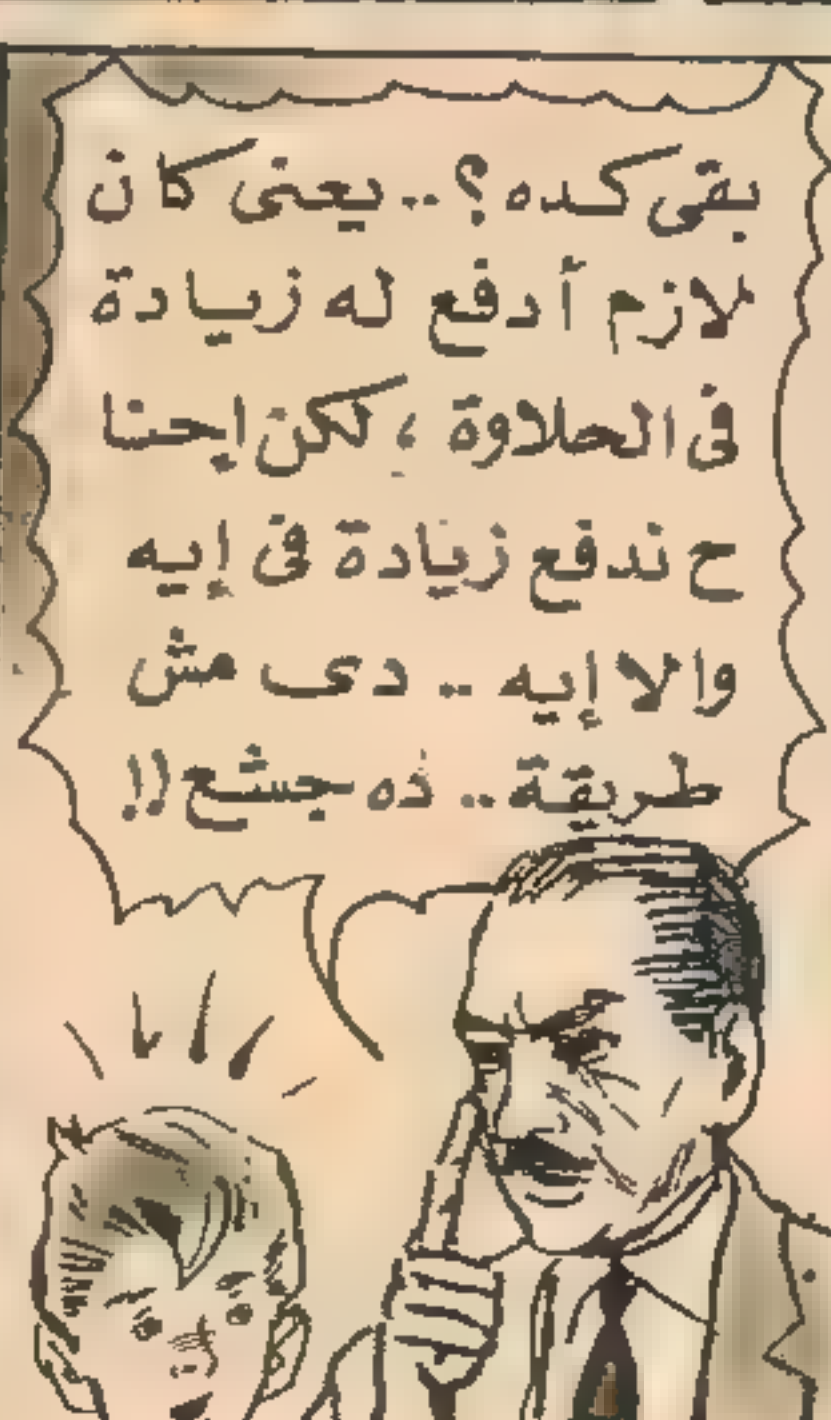 بقى كده؟.. يعنى كان
لازم أدفع له زيادة
فى الحلاوة، لكن إحنا
ح ندفع زيادة فى إيه
والا إيه .. دى مش
طريقة.. ده جشع!!